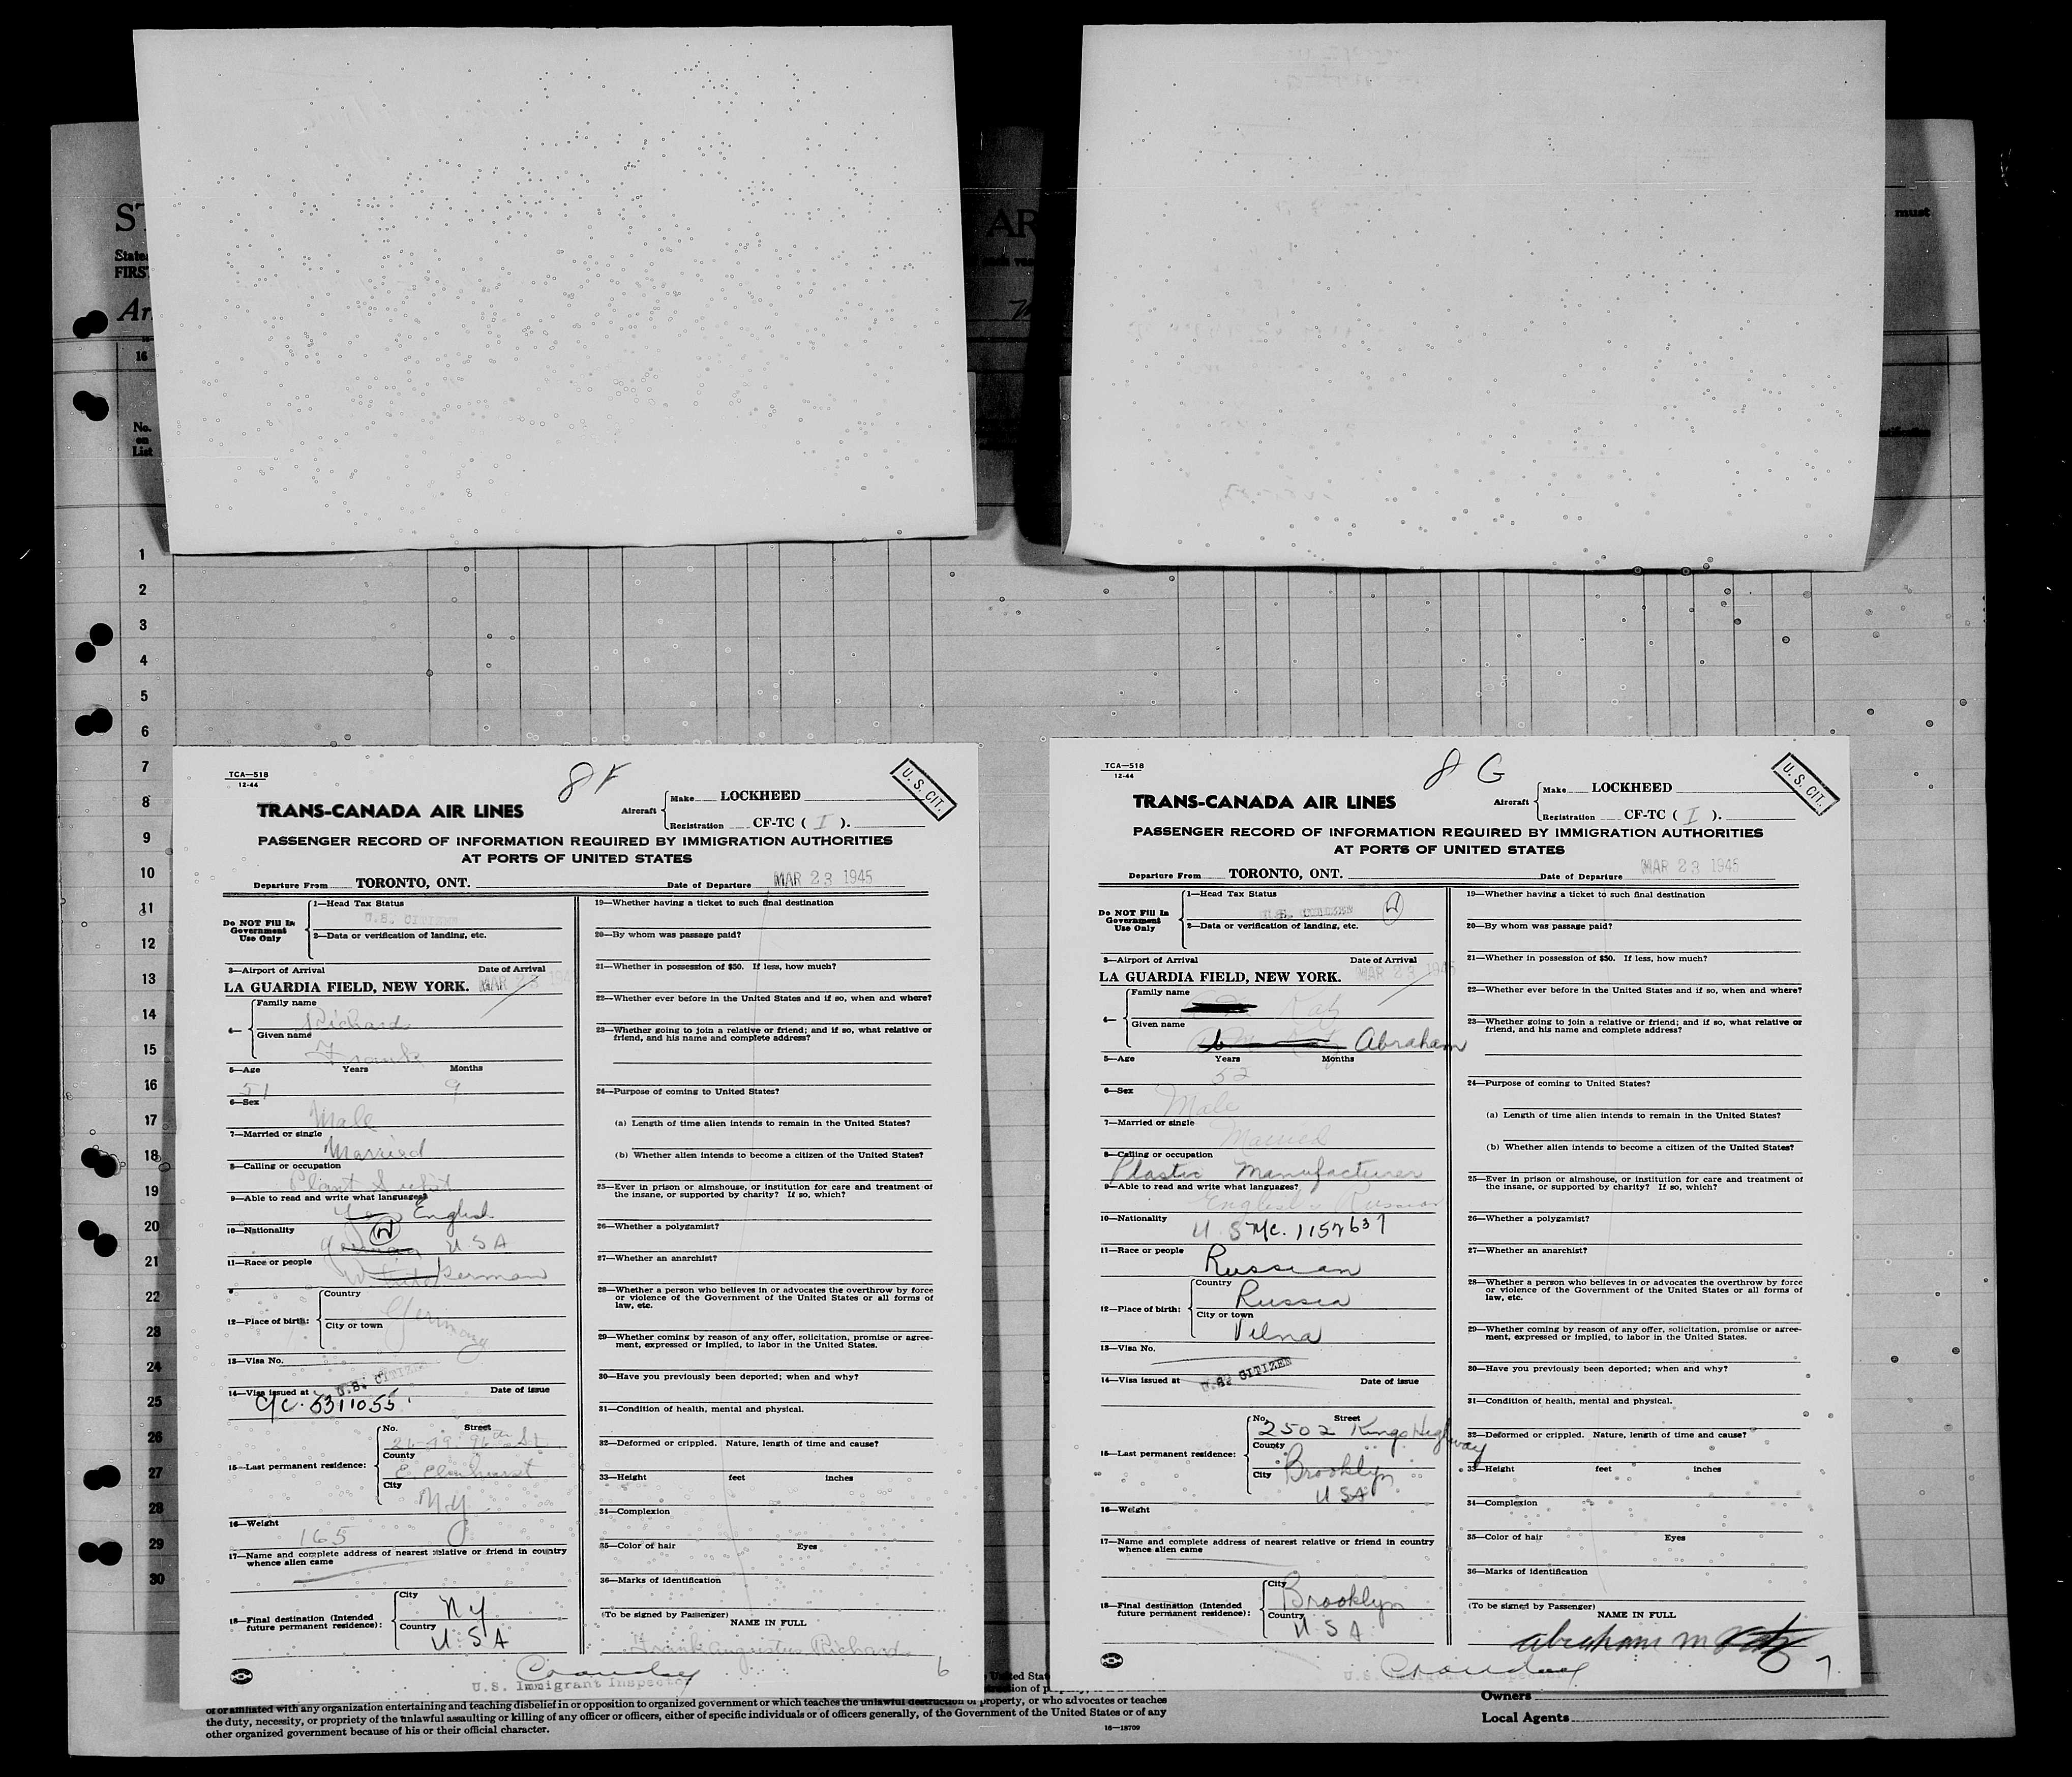 ST
AR
must
State
FIRST
Ar
16
No.
on
List
1
2
3
4
5
6
7
8
9
10
11
12
13
14
15
16
17
18
19
20
21
22
23
24
25
26
27
28
29
30
TCA—518
12-44
8F
U. S. CIT.
TRANS-CANADA AIR LINES
Aircraft
Make LOCKHEED
Registration CF-TC ( I ).
PASSENGER RECORD OF INFORMATION REQUIRED BY IMMIGRATION AUTHORITIES
AT PORTS OF UNITED STATES
Departure From TORONTO, ONT. Date of Departure MAR 23 1945
Do NOT Fill In
Government
Use Only
1—Head Tax Status
U.S. CITIZEN
2—Data or verification of landing, etc.
3—Airport of Arrival Date of Arrival
LA GUARDIA FIELD, NEW YORK. MAR 23 1945
4— Family name
Richard
Given name
Frank
5—Age Years Months
51 9
6—Sex
Male
7—Married or single
Married
8—Calling or occupation
Plant Supt
9—Able to read and write what languages?
Yes English
10—Nationality
U S A
11—Race or people
White German
12—Place of birth: Country
Germany
City or town
13—Visa No.
U.S. CITIZEN
14—Visa issued at Date of issue
C/C. 5311055
15—Last permanent residence: No. Street
96th St
County
E. Elmhurst
City
N.Y
16—Weight
165
17—Name and complete address of nearest relative or friend in country
whence alien came
18—Final destination (Intended
future permanent residence):
City
N Y
Country
U S A
19—Whether having a ticket to such final destination
20—By whom was passage paid?
21—Whether in possession of $50. If less, how much?
22—Whether ever before in the United States and if so, when and where?
23—Whether going to join a relative or friend; and if so, what relative or
friend, and his name and complete address?
24—Purpose of coming to United States?
(a) Length of time alien intends to remain in the United States?
(b) Whether alien intends to become a citizen of the United States?
25—Ever in prison or almshouse, or institution for care and treatment of
the insane, or supported by charity? If so, which?
26—Whether a polygamist?
27—Whether an anarchist?
28—Whether a person who believes in or advocates the overthrow by force
or violence of the Government of the United States or all forms of
law, etc.
29—Whether coming by reason of any offer, solicitation, promise or agree-
ment, expressed or implied, to labor in the United States.
30—Have you previously been deported; when and why?
31—Condition of health, mental and physical.
32—Deformed or crippled. Nature, length of time and cause?
33—Height feet inches
34—Complexion
35—Color of hair Eyes
36—Marks of identification
(To be signed by Passenger)
NAME IN FULL
Frank Augustus Richard
6
U.S. Immigrant Inspector
TCA—518
12-44
8 G
U. S. CIT.
TRANS-CANADA AIR LINES
Aircraft
Make LOCKHEED
Registration CF-TC ( I ).
PASSENGER RECORD OF INFORMATION REQUIRED BY IMMIGRATION AUTHORITIES
AT PORTS OF UNITED STATES
Departure From TORONTO, ONT. Date of Departure MAR 23 1945
Do NOT Fill In
Government
Use Only
1—Head Tax Status
U.S. CITIZEN
2—Data or verification of landing, etc.
3—Airport of Arrival Date of Arrival
LA GUARDIA FIELD, NEW YORK. MAR 23 1945
4— Family name
Katz
Given name
Abraham
5—Age Years Months
52
6—Sex
Male
7—Married or single
Married
8—Calling or occupation
Plastic Manufacturer
9—Able to read and write what languages?
English & Russian
10—Nationality
U S N/C. 1152637
11—Race or people
Russian
12—Place of birth: Country
Russia
City or town
Vilna
13—Visa No.
U.S. CITIZEN
14—Visa issued at Date of issue
15—Last permanent residence: No. Street
2502 Kings Highway
County
Brooklyn
City
U S A
16—Weight
17—Name and complete address of nearest relative or friend in country
whence alien came
18—Final destination (Intended
future permanent residence):
City
Brooklyn
Country
U S A
19—Whether having a ticket to such final destination
20—By whom was passage paid?
21—Whether in possession of $50. If less, how much?
22—Whether ever before in the United States and if so, when and where?
23—Whether going to join a relative or friend; and if so, what relative or
friend, and his name and complete address?
24—Purpose of coming to United States?
(a) Length of time alien intends to remain in the United States?
(b) Whether alien intends to become a citizen of the United States?
25—Ever in prison or almshouse, or institution for care and treatment of
the insane, or supported by charity? If so, which?
26—Whether a polygamist?
27—Whether an anarchist?
28—Whether a person who believes in or advocates the overthrow by force
or violence of the Government of the United States or all forms of
law, etc.
29—Whether coming by reason of any offer, solicitation, promise or agree-
ment, expressed or implied, to labor in the United States.
30—Have you previously been deported; when and why?
31—Condition of health, mental and physical.
32—Deformed or crippled. Nature, length of time and cause?
33—Height feet inches
34—Complexion
35—Color of hair Eyes
36—Marks of identification
(To be signed by Passenger)
NAME IN FULL
Abraham M Katz
7
or affiliated with any organization entertaining and teaching disbelief in or opposition to organized government or which teaches the unlawful destruction of property, or who advocates or teaches
the duty, necessity, or propriety of the unlawful assaulting or killing of any officer or officers, either of specific individuals or of officers generally, of the Government of the United States or of any
other organized government because of his or their official character.
16—18709
Owners
Local Agents